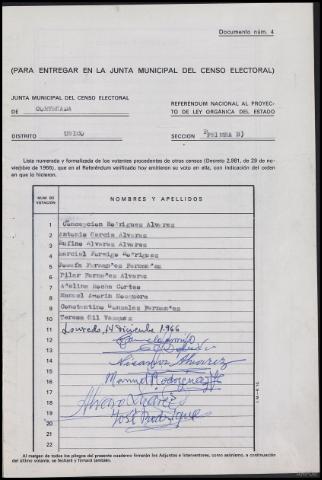 Documento núm. 4
(PARA ENTREGAR EN LA JUNTA MUNICIPAL DEL CENSO ELECTORAL)
JUNTA MUNICIPAL DEL CENSO ELECTORAL
DE CORTEGADA
REFERENDUM NACIONAL AL PROYEC-
TO DE LEY ORGANICA DEL ESTADO
DISTRITO UNICO
SECCION PRIMERA B)
Lista numerada y formalizada de los votantes procedentes de otros censos (Decreto 2.981, de 29 de no-
viembre de 1966), que en el Referéndum verificado hoy emitieron su voto en ella, con indicación del orden
en que lo hicieron.
NUM DE VOTACION
NOMBRES Y APELLIDOS
1 Concepcion Rodriguez Alvarez
2 Antonio Garcia Alvarez
3 Rufino Alvarez Alvarez
4 Marcial Rodriguez
5 Josefa Fernandez Fernandez
6 Pilar Fernandez Alvarez
7 Adelina Rocha Cortes
8 Manuel Mosquera
9 Constantino Gonzalez Fernandez
10 Teresa Gil Vazquez
11 Louredo 14 Diciembre 1.966
12
13
14 Nicanor Alvarez
15
16 Manuel Rodriguez
17
18 Alvaro
19 José Rodriguez
20
21
22
Al margen de todos los pliegos del presente cuaderno firmarán los Adjuntos e Interventores, como asimismo, a continuación
del último votante, se fechará y firmará también.